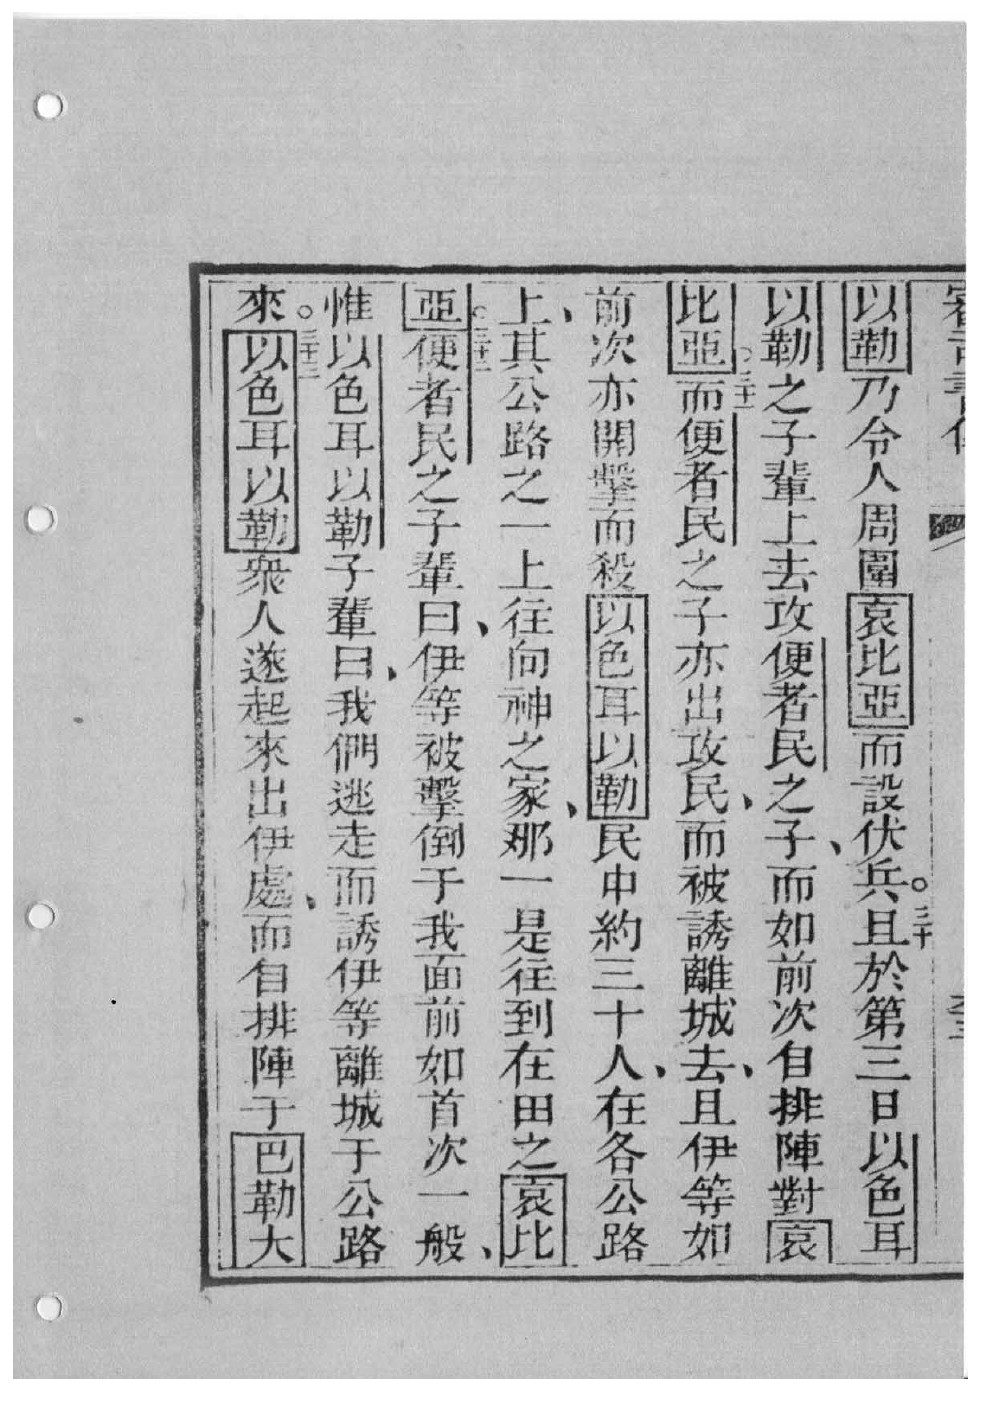 以勒乃令人周圍哀比亞而設伏兵。三十且於第三日以色耳
以勒之子輩上去攻便者民之子、而如前次自排陣對哀
比亞。三十一而便者民之子亦出攻民、而被誘離城去、且伊等如
前次亦開擊而殺以色耳以勒民中約三十人、在各公路
上、其公路之一上往向神之家、那一是往到在田之哀比
亞。三十二便者民之子輩曰、伊等被擊倒于我面前如首次一般、
惟以色耳以勒子輩曰、我們逃走而誘伊等離城于公路
來。三十三以色耳以勒衆人遂起來出伊處、而自排陣于巴勒大